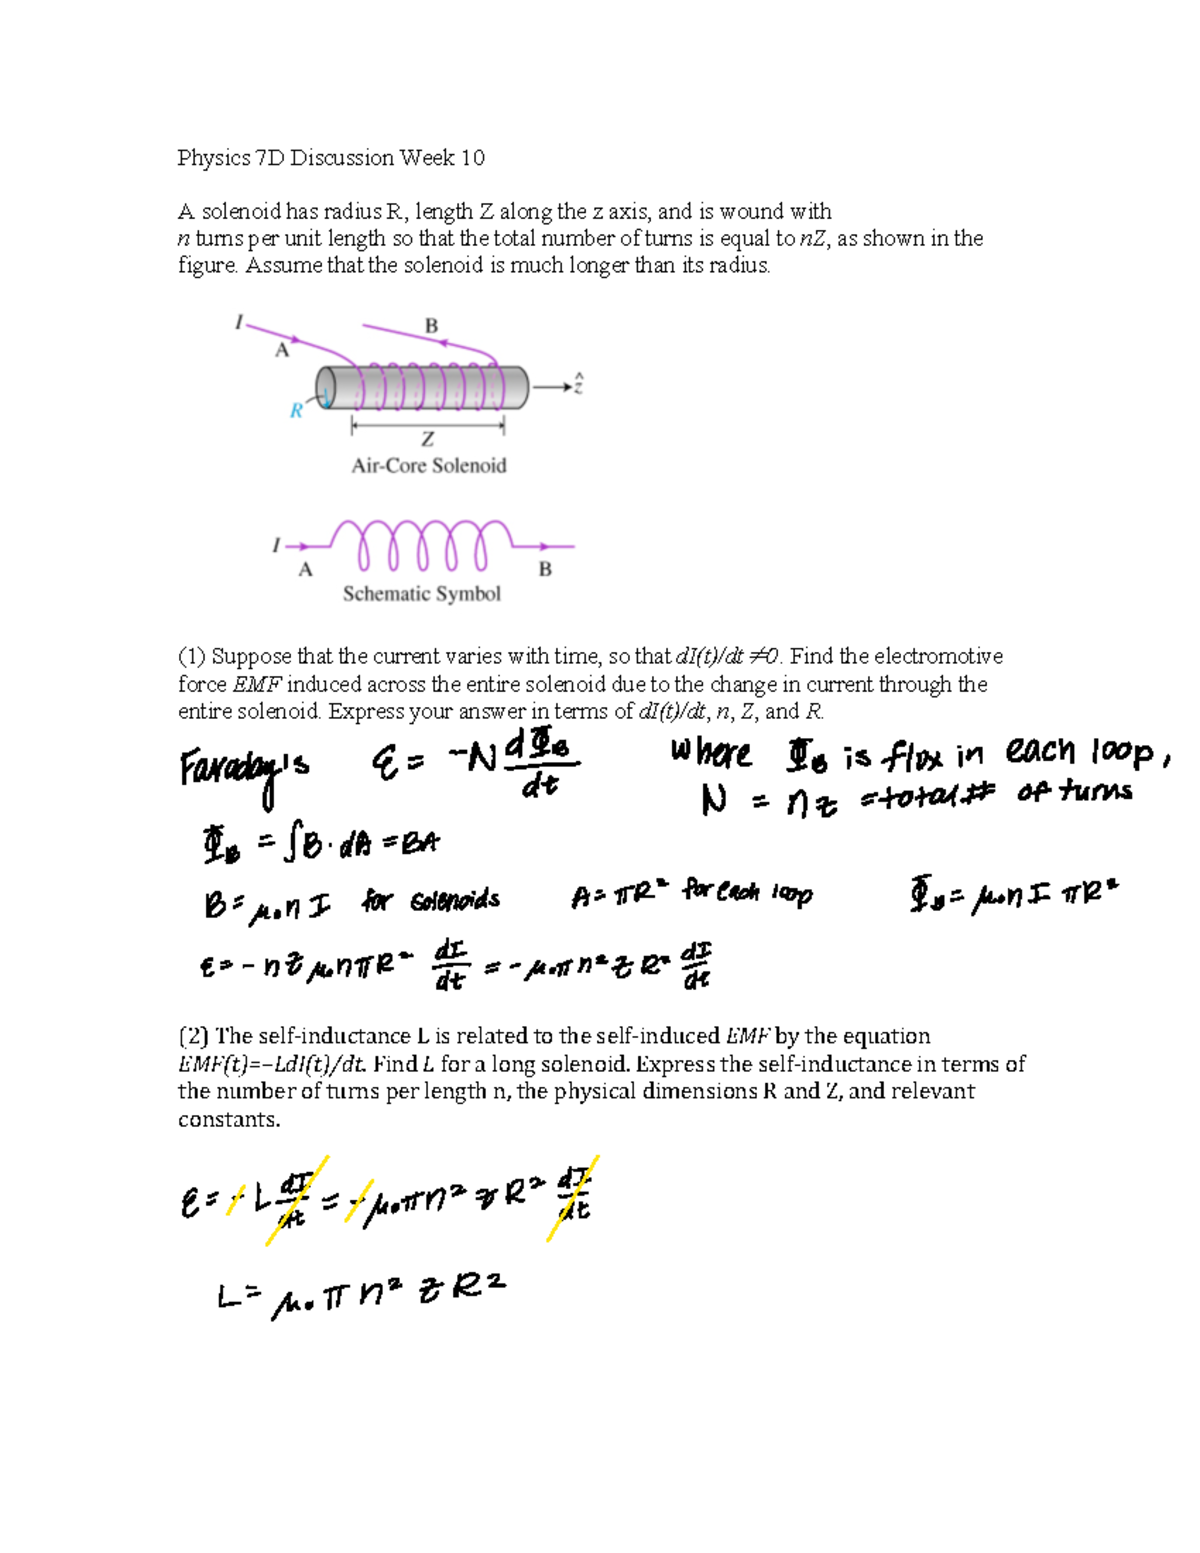 Physics 7D Discussion Week 10
A solenoid has radius R, length Z along the z axis, and is wound with
n turns per unit length so that the total number of turns is equal to nZ, as shown in the
figure. Assume that the solenoid is much longer than its radius.
I
A
B
R
ẑ
Z
Air-Core Solenoid
I
A
B
Schematic Symbol
(1) Suppose that the current varies with time, so that dI(t)/dt ≠0. Find the electromotive
force EMF induced across the entire solenoid due to the change in current through the
entire solenoid. Express your answer in terms of dI(t)/dt, n, Z, and R.
Faraday's ε = -N dΦB/dt where ΦB is flux in each loop,
N = nz = total # of turns
ΦB = ∫B·dA = BA
B = μ₀nI for solenoids A = πR² for each loop ΦB = μ₀nI πR²
ε = - nz μ₀nπR² dI/dt = -μ₀π n² z R² dI/dt
(2) The self-inductance L is related to the self-induced EMF by the equation
EMF(t)=−LdI(t)/dt. Find L for a long solenoid. Express the self-inductance in terms of
the number of turns per length n, the physical dimensions R and Z, and relevant
constants.
ε = - L dI/dt = -μ₀πn² z R² dI/dt
L = μ₀ π n² z R²